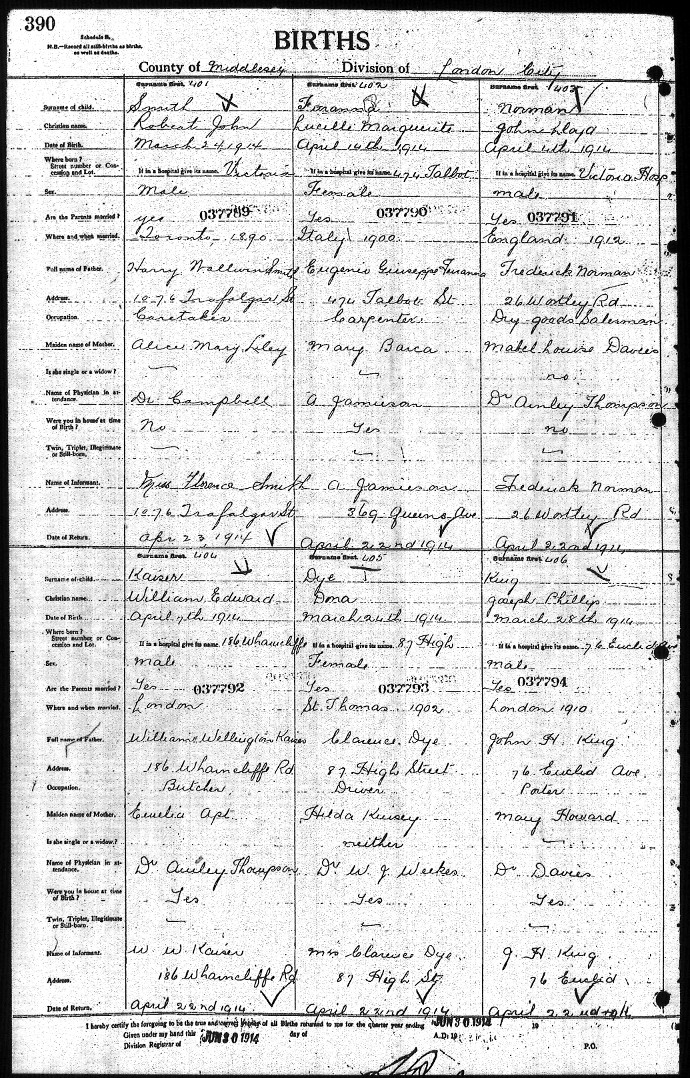 390
Schedule B.
N.B.—Record all still-births as births, as well as deaths.
BIRTHS
County of Middlesex Division of London City
Surname first. 401 Surname first. 402 Surname first. 403
Surname of child. Smith Norman
Christian name. Robert John Lucille Marguerite John Lloyd
Date of Birth. March 24, 1914 April 14th 1914 April 4th 1914
Where born? Street number or Concession and Lot. If in a hospital give its name. Victoria If in a hospital give its name. 474 Talbot If in a hospital give its name. Victoria Hosp
Sex. Male Female male
Are the Parents married? yes 037789 Yes 037790 Yes 037791
Where and when married. Toronto 1890 Italy 1900 England 1912
Full name of Father. Harry Smith Eugenio Giuseppe Frederick Norman
Address. 1076 Trafalgar St 474 Talbot St 26 Wortley Rd
Occupation. Caretaker Carpenter Dry goods Salesman
Maiden name of Mother. Alice Mary Liley Mary Barca Mabel Louise Davies
Is she single or a widow? — — no
Name of Physician in attendance. Dr Campbell A Jamieson Dr Ainley Thompson
Were you in house at time of Birth? No Yes no
Twin, Triplet, Illegitimate or Still-born. — — —
Name of Informant. Miss Florence Smith A Jamieson Frederick Norman
Address 1076 Trafalgar St 369 Queens Ave 26 Wortley Rd
Date of Return. Apr 23, 1914 April 22nd 1914 April 22nd 1914
Surname first. 404 Surname first. 405 Surname first. 406
Surname of child. Kaiser Dye King
Christian name. William Edward Dora Joseph Phillip
Date of Birth. April 7th 1914 March 24th 1914 March 28th 1914
Where born? Street number or Concession and Lot. If in a hospital give its name. 186 Wharncliffe If in a hospital give its name. 87 High If in a hospital give its name. 76 Euclid Ave
Sex. male Female male
Are the Parents married? Yes 037792 Yes 037793 Yes 037794
Where and when married. London St. Thomas 1902 London 1910
Full name of Father. William Wellington Kaiser Clarence Dye John H. King
Address. 186 Wharncliffe Rd 87 High Street 76 Euclid Ave
Occupation. Butcher Driver Porter
Maiden name of Mother. Emelia Apt Hilda Kersey Mary Howard
Is she single or a widow? neither —
Name of Physician in attendance. Dr Ainley Thompson Dr W. J. Weekes Dr Davies
Were you in house at time of Birth? Yes Yes Yes
Twin, Triplet, Illegitimate or Still-born. — — —
Name of Informant. W. W. Kaiser Mrs Clarence Dye J. H. King
Address. 186 Wharncliffe Rd 87 High St. 76 Euclid
Date of Return. April 22nd 1914 April 22nd 1914 April 22nd 1914
I hereby certify the foregoing to be the true and correct of all Births returned to me for the quarter year ending JUN 30 1914 19
Given under my hand this JUN 30 1914 day of A.D. 19
Division Registrar of P.O.